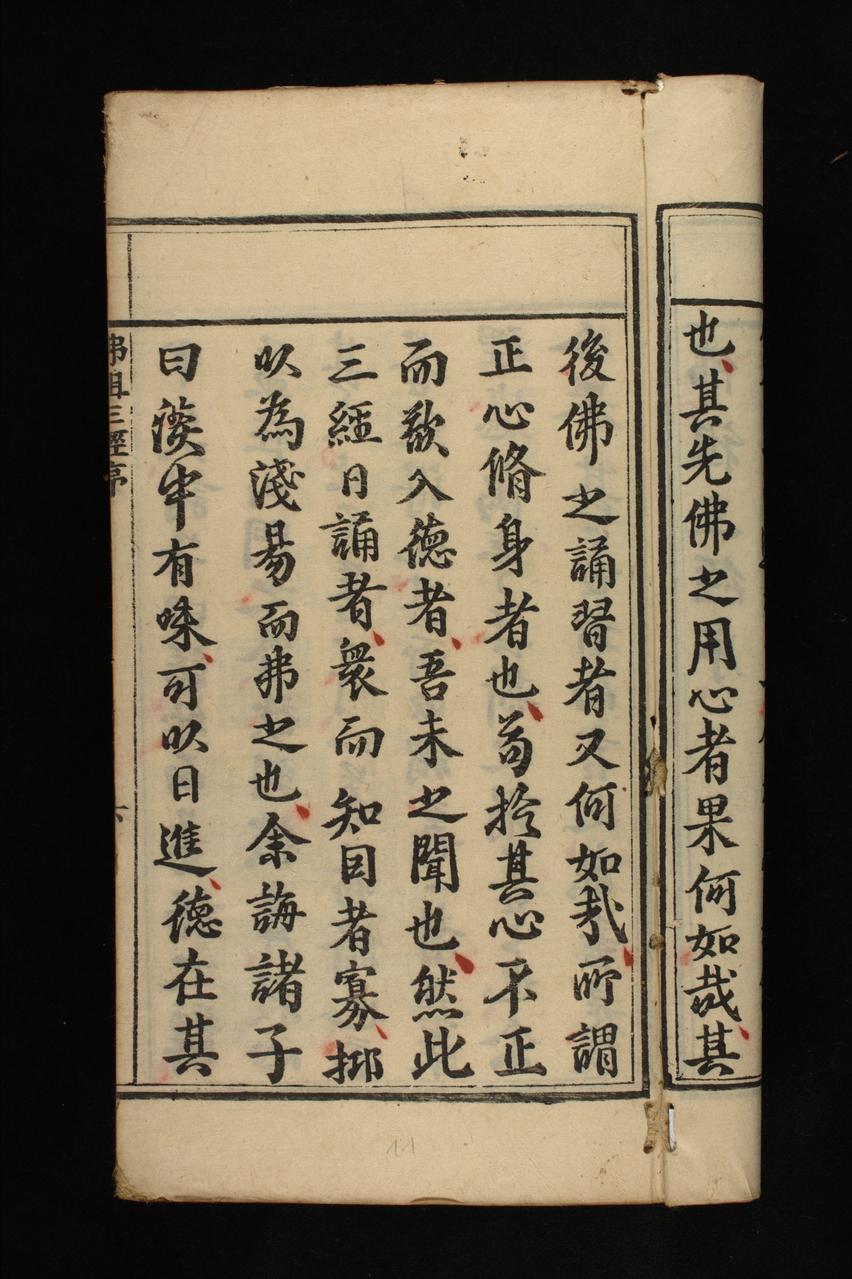 也其先佛之用心者果何如哉其
後佛之誦習者又何如哉所謂
正心脩身者也苟於其心不正
而欲入德者吾未之聞也然此
三經日誦者衆而知因者寡抑
以為淺易而弗之也余誨諸子
曰淡中有味可以日進德在其
佛祖三經序
六
11